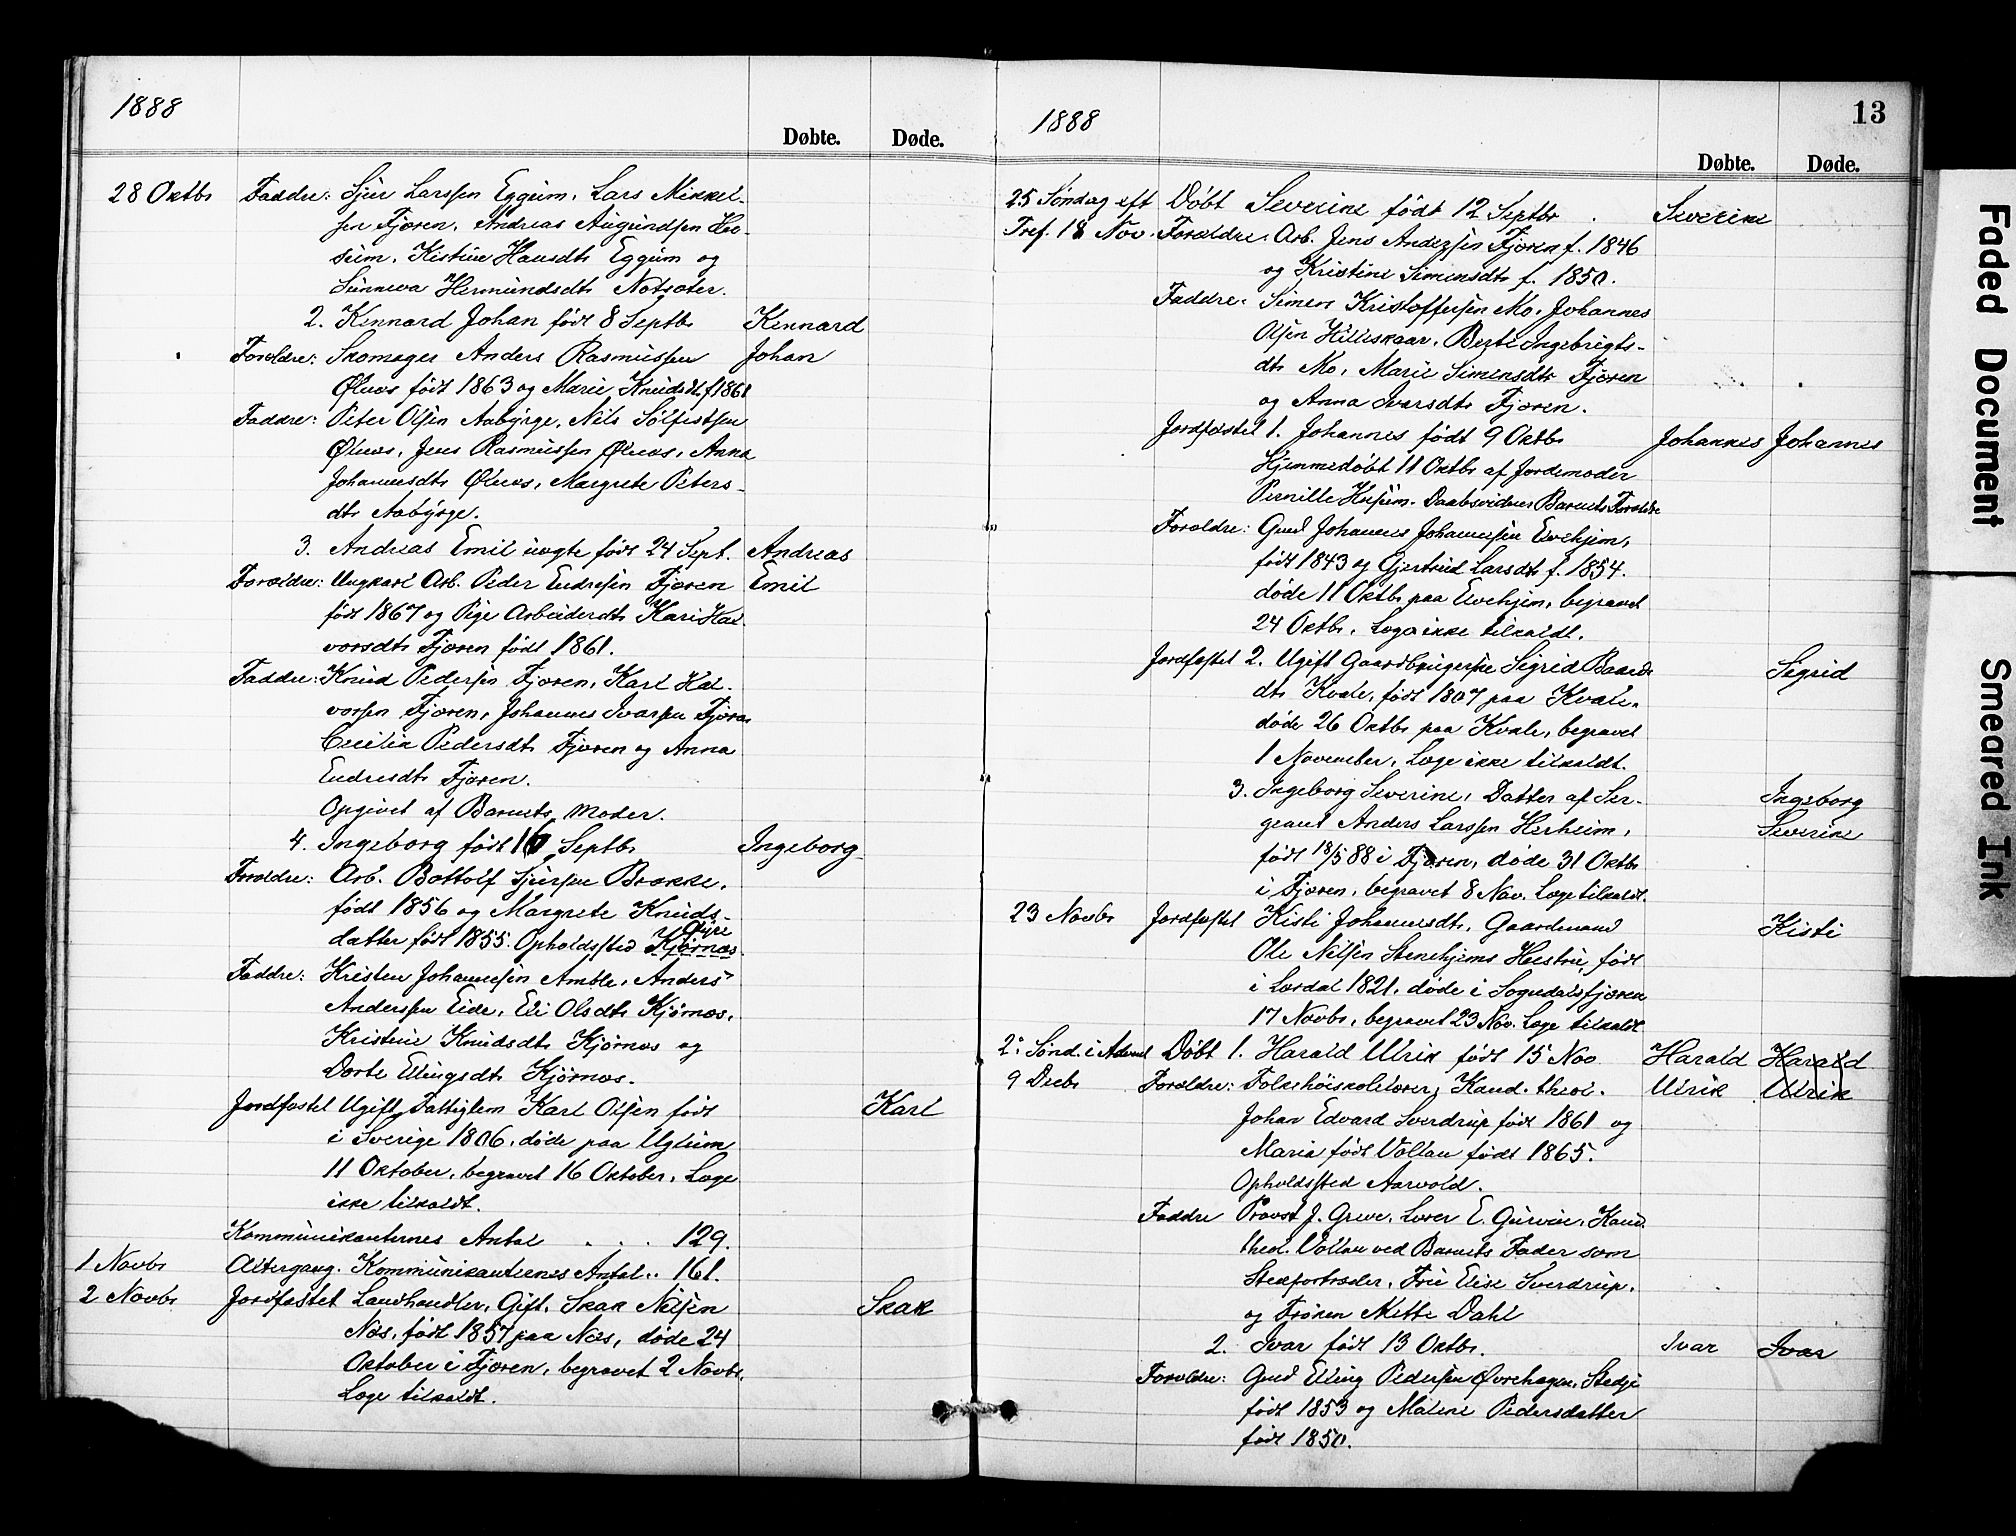 1888
Døbte. Døde.
28 Oktbr Faddre: Sjur Larssen Eggum, Lars Mikkel-
sen Fjæren, Andreas Augundsen
Kistine Hansdtr Eggum og
Sunneva Hermundsdtr Notsæter.
2. Kennard Johan født 8 Septbr Kennard
Forældre: Skomager Anders Rasmussen Johan
Ølnes født 1863 og Marie Knudsdtr f. 1861
Faddre: Peter Olsen Aabyrge, Nils Sølfestsen
Ølnes, Jens Rasmussen Ølnes, Anna
Johannesdtr Ølnes, Margrete Peters-
dtr Aabyrge.
3. Andreas Emil uægte født 24 Sept. Andreas
Forældre: Ungkarl Arb. Peder Endresen Fjæren Emil
født 1867 og Pige Arbeiderdtr Kari Hal-
vorsdtr Fjæren født 1861.
Faddre: Knud Pedersen Fjæren, Karl Hal-
vorsen Fjæren, Johannes Ivarsen Fjæren
Cecilia Pedersdtr Fjæren og Anna
Endresdtr Fjæren.
Opgivet af Barnets Moder.
4. Ingeborg født 16 Septbr Ingeborg
Forældre: Arb. Bottolf Sjursen Brække,
født 1856 og Margrete Knuds-
Øyre
datter født 1855. Opholdssted Kjørnæs.
Faddre: Kristen Johannesen Amble, Anders
Anderssen Eide, Eli Olsdtr Kjørnæs,
Kristine Knudsdtr Kjørnæs og
Dorte Ellingsdtr Kjørnæs.
Jordfæstet Ugift Fattiglem Karl Olsen født Karl
i Sverige 1806, døde paa Uglum
11 Oktober, begravet 16 Oktober, Læge
ikke tilkaldt.
Kommunikanternes Antal . . . 129.
1 Novbr Altergang. Kommunikanternes Antal .. 161.
2 Novbr Jordfæstet Landhandler, Gift, Skak Nilsen Skak
Næs, født 1857 paa Næs, døde 24
Oktober i Fjæren, begravet 2 Novbr,
Læge tilkaldt.
1888
13
Døbte. Døde.
25 Søndag eft Døbt Severine født 12 Septbr Severine
Tref. 18 Nov. Forældre. Arb. Jens Anderssen Fjæren f. 1846
og Kristine Simensdtr f. 1850.
Faddre. Simen Kristoffersen Mo, Johannes
Olsen Hilleskaar, Berte Ingebrigts-
dtr Mo, Marie Simensdtr Fjæren
og Anna Ivarsdtr Fjæren.
Jordfæstet 1. Johannes født 9 Oktbr Johannes Johannes
Hjemmedøbt 11 Oktbr af Jordemoder
Pernille Husum. Daabsvidner Barnets Forældre
Forældre: Gmd Johannes Johannesen Kvehjem,
født 1843 og Gjertrud Larsdtr f. 1854.
døde 11 Oktbr paa Kvehjem, begravet
24 Oktbr, Læge ikke tilkaldt.
Jordfæstet 2. Ugift Gaardbrugerske Sigrid Baards Sigrid
dtr Kvale, født 1807 paa Kvale,
døde 26 Oktbr paa Kvale, begravet
1 November, Læge ikke tilkaldt.
3. Ingeborg Severine, Datter af Ser- Ingeborg
geant Anders Larssen Herheim, Severine
født 18/5 88 i Fjæren, døde 31 Oktbr
i Fjæren, begravet 8 Nov. Læge tilkaldt.
23 Novbr Jordfæstet Kisti Johannesdtr, Gaardmand Kisti
Ole Nilsen Stenehjems Hustru, født
i Lærdal 1821, døde i Sogndalsfjæren
17 Novbr, begravet 23 Nov. Læge tilkaldt
2. Sønd. i Advent Døbt 1. Harald Ulrik født 15 Nov Harald Harald
9 Decbr Forældre: Folkehøiskolelærer, Kand. theol. Ulrik Ulrik
Johan Edvard Sverdrup født 1861 og
Maria født Vollan født 1865.
Opholdssted Aarvold.
Faddre Provst J. Greve, Lærer E. Gurvin, Kand.
theol. Vollan ved Barnets Fader som
Stedfortræder, Fru Elise Sverdrup,
og Frøken Mette Dahl
2. Ivar født 13 Oktbr. Ivar Ivar
Forældre: Gmd Elling Pedersen Øvrehagen, Stedje
født 1853 og Malene Pedersdatter
født 1850.
Faded Document
Smeared Ink